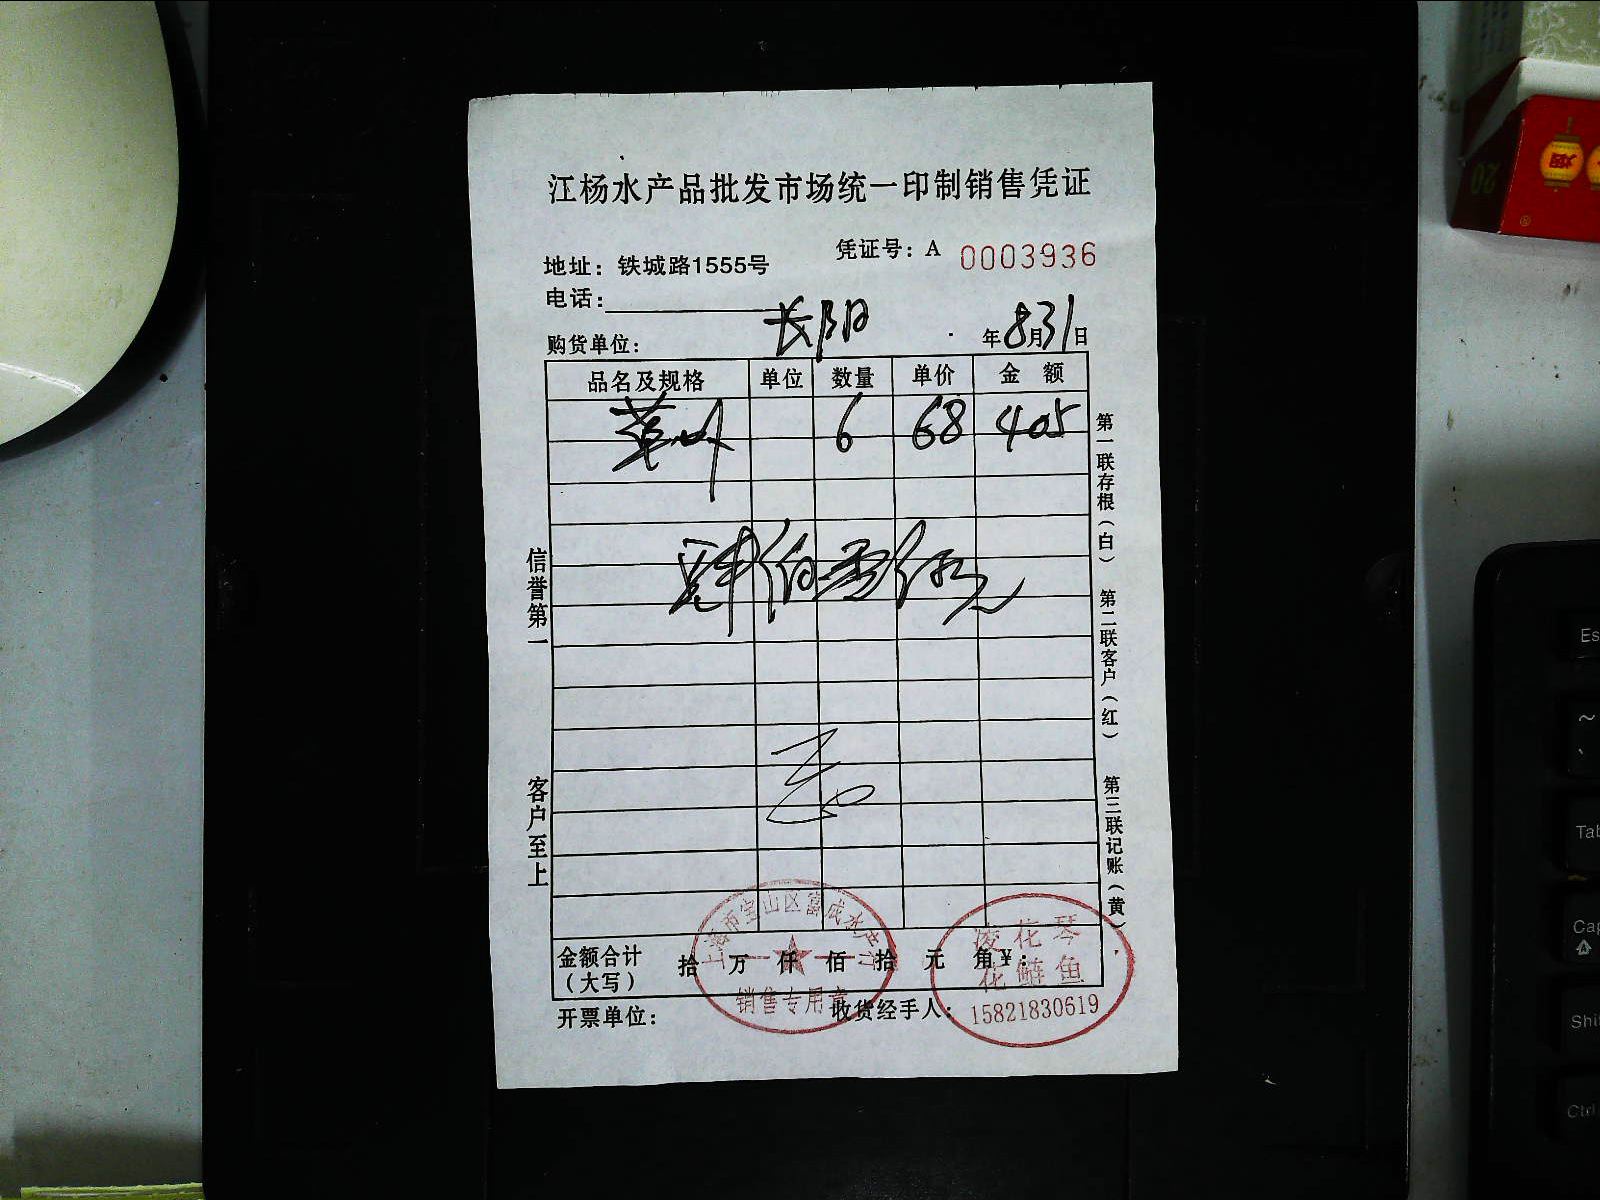 江杨水产品批发市场统一印制销售凭证
凭证号：A 0003936
地址：铁城路1555号
电话：
购货单位： 长阳 年8月31日
品名及规格 单位 数量 单价 金 额
6 68 405
肆佰零伍元
信誉第一
客户至上
第一联存根（白）
第二联客户（红）
第三联记账（黄）
金额合计（大写） 拾 万 仟 佰 拾 元 角¥：
开票单位： 收货经手人：
上海市宝山区富成水产行
销售专用章
凌花琴
花鲢鱼
15821830619
20
烟
Es
~
Tab
Cap
Shi
Ctrl